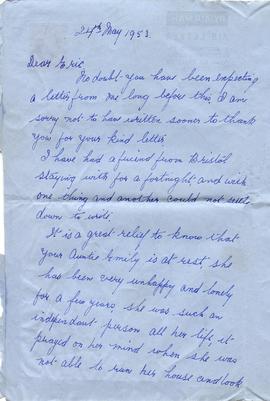 24th May 1953.
Dear Eric
No doubt you have been expecting
a letter from me long before this I am
sorry not to have written sooner to thank
you for your kind letter
I have had a friend from Bristol
staying with for a fortnight, and with
one thing and another could not settle
down to write.
It is a great relief to know that
your Auntie Emily is at rest, she
has been very unhappy and lonely
for a few years, she was such an
independant person all her life, it
prayed on her mind when she was
not able to run her house and look